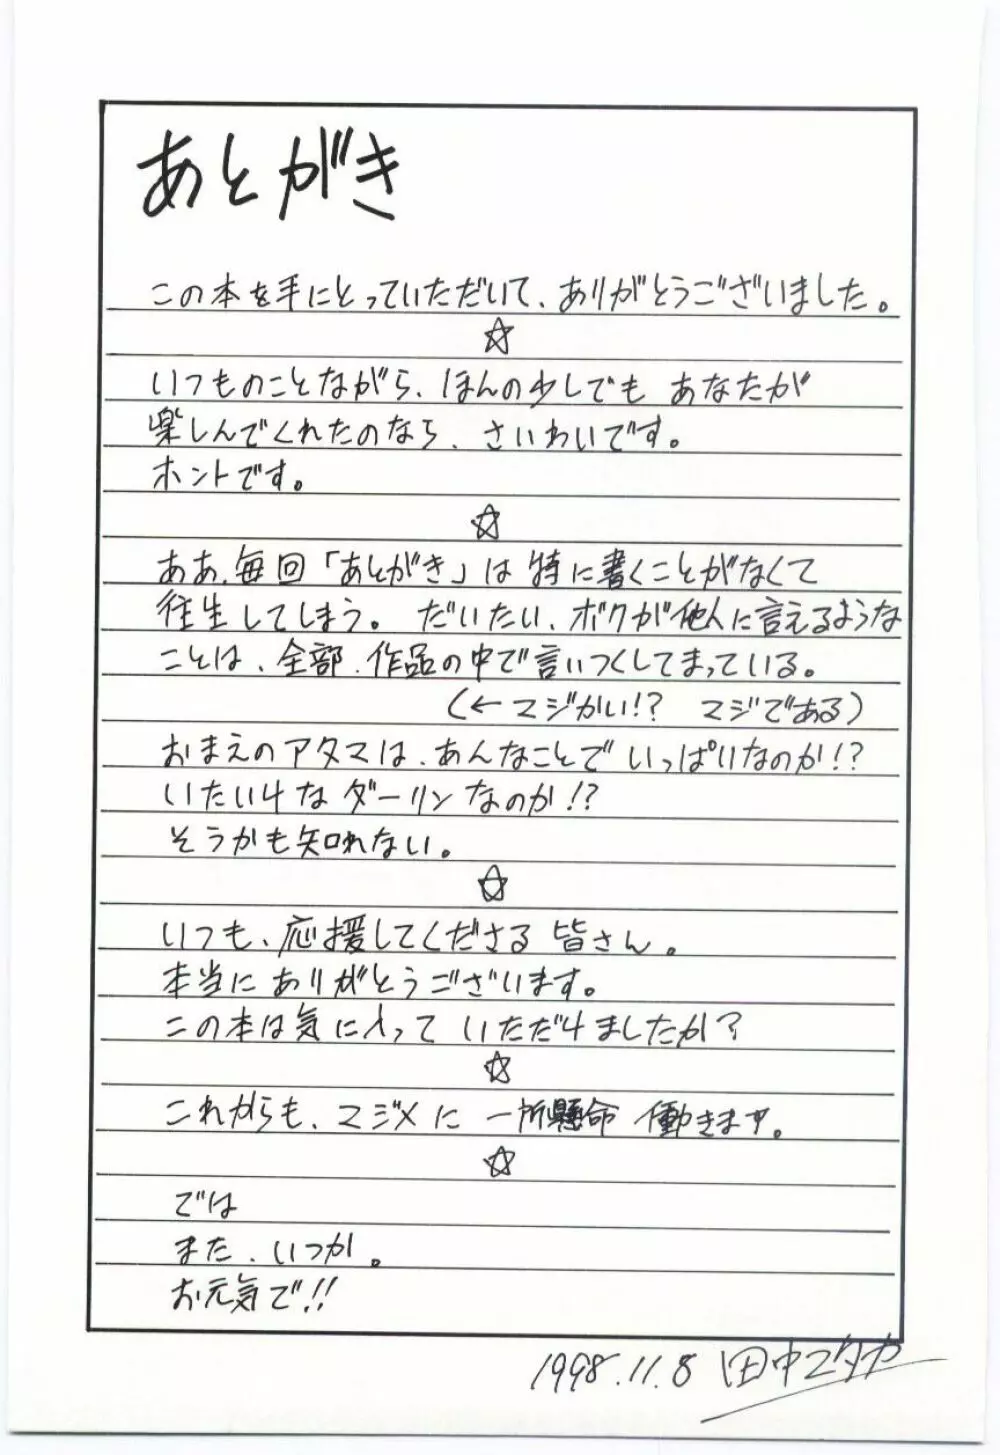 あとがき
この本を手にとっていただいて、ありがとうございました。
☆
いつものことながら、ほんの少しでも あなたが
楽しんでくれたのなら、さいわいです。
ホントです。
☆
ああ、毎回「あとがき」は 特に書くことがなくて
往生してしまう。 だいたい、ボクが他人に言えるような
ことは、全部、作品の中で言いつくしてまっている。
(←マジかい!? マジである)
おまえのアタマは、あんなことで いっぱいなのか!?
いたいけなダーリンなのか!?
そうかも知れない。
☆
いつも、応援してくださる 皆さん。
本当に ありがとうございます。
この本は気に入って いただけましたか?
☆
これからも、マジメに 一所懸命 働きます。
☆
では
また、いつか。
お元気で!!
1998.11.8 田中ユタカ